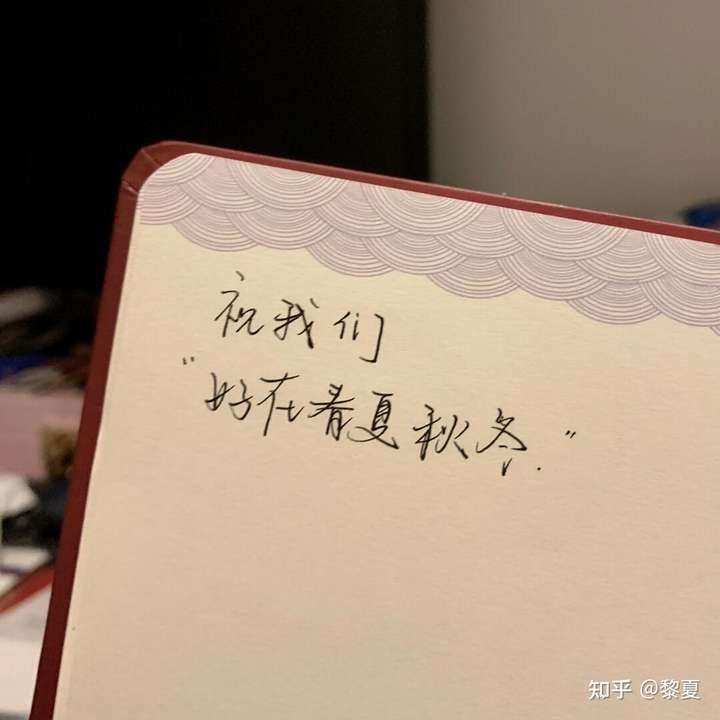 祝我们
“好在春夏秋冬.”
知乎 @黎夏